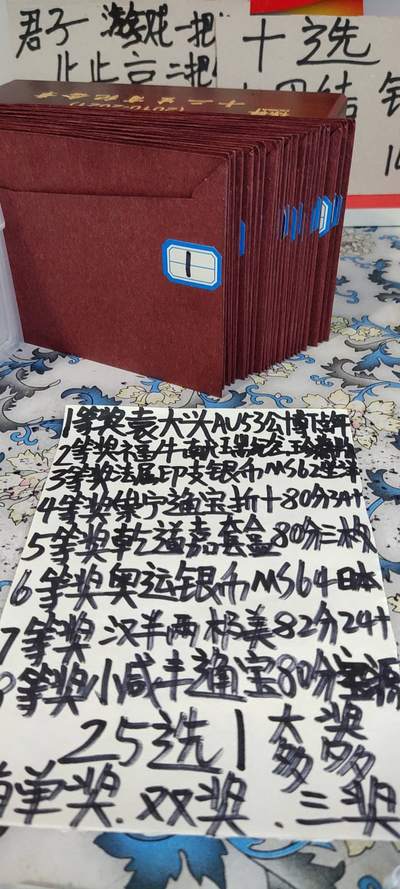 君子 游戏一把
止止言二把
十选
四结 钱
十二生肖纪念册
1
1等奖袁大头AU53公博
2等奖福牛献瑞
3等奖法属印支银币MS62坐洋
4等奖崇宁通宝折十80分34+
5等奖乾道嘉套盒80分三枚
6等奖奥运银币MS64日本
7等奖 汉半两 极美82分24+
8等奖小咸丰通宝80分宝源
25选1 大奖多多
单奖.双奖.三奖